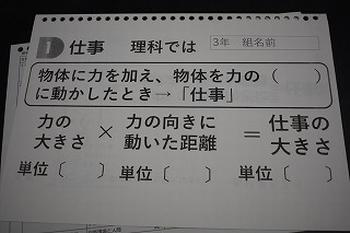 1 仕事 理科では
3年 組名前
物体に力を加え、物体を力の( )
に動かしたとき→「仕事」
力の大きさ × 力の向きに動いた距離 = 仕事の大きさ
単位〔 〕 単位〔 〕 単位〔 〕